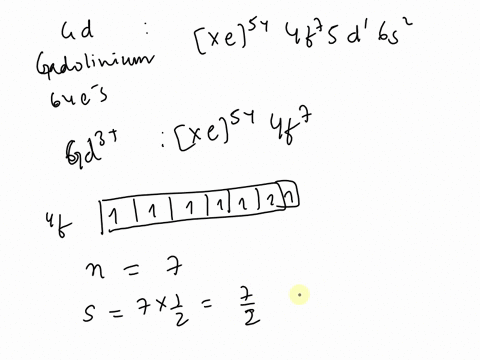 Gd : [Xe]⁵⁴ 4f⁷ 5d¹ 6s²
Gadolinium
64e⁻s
Gd³⁺ : [Xe]⁵⁴ 4f⁷
4f 1 1 1 1 1 1 1
n = 7
S = 7 × 1/2 = 7/2